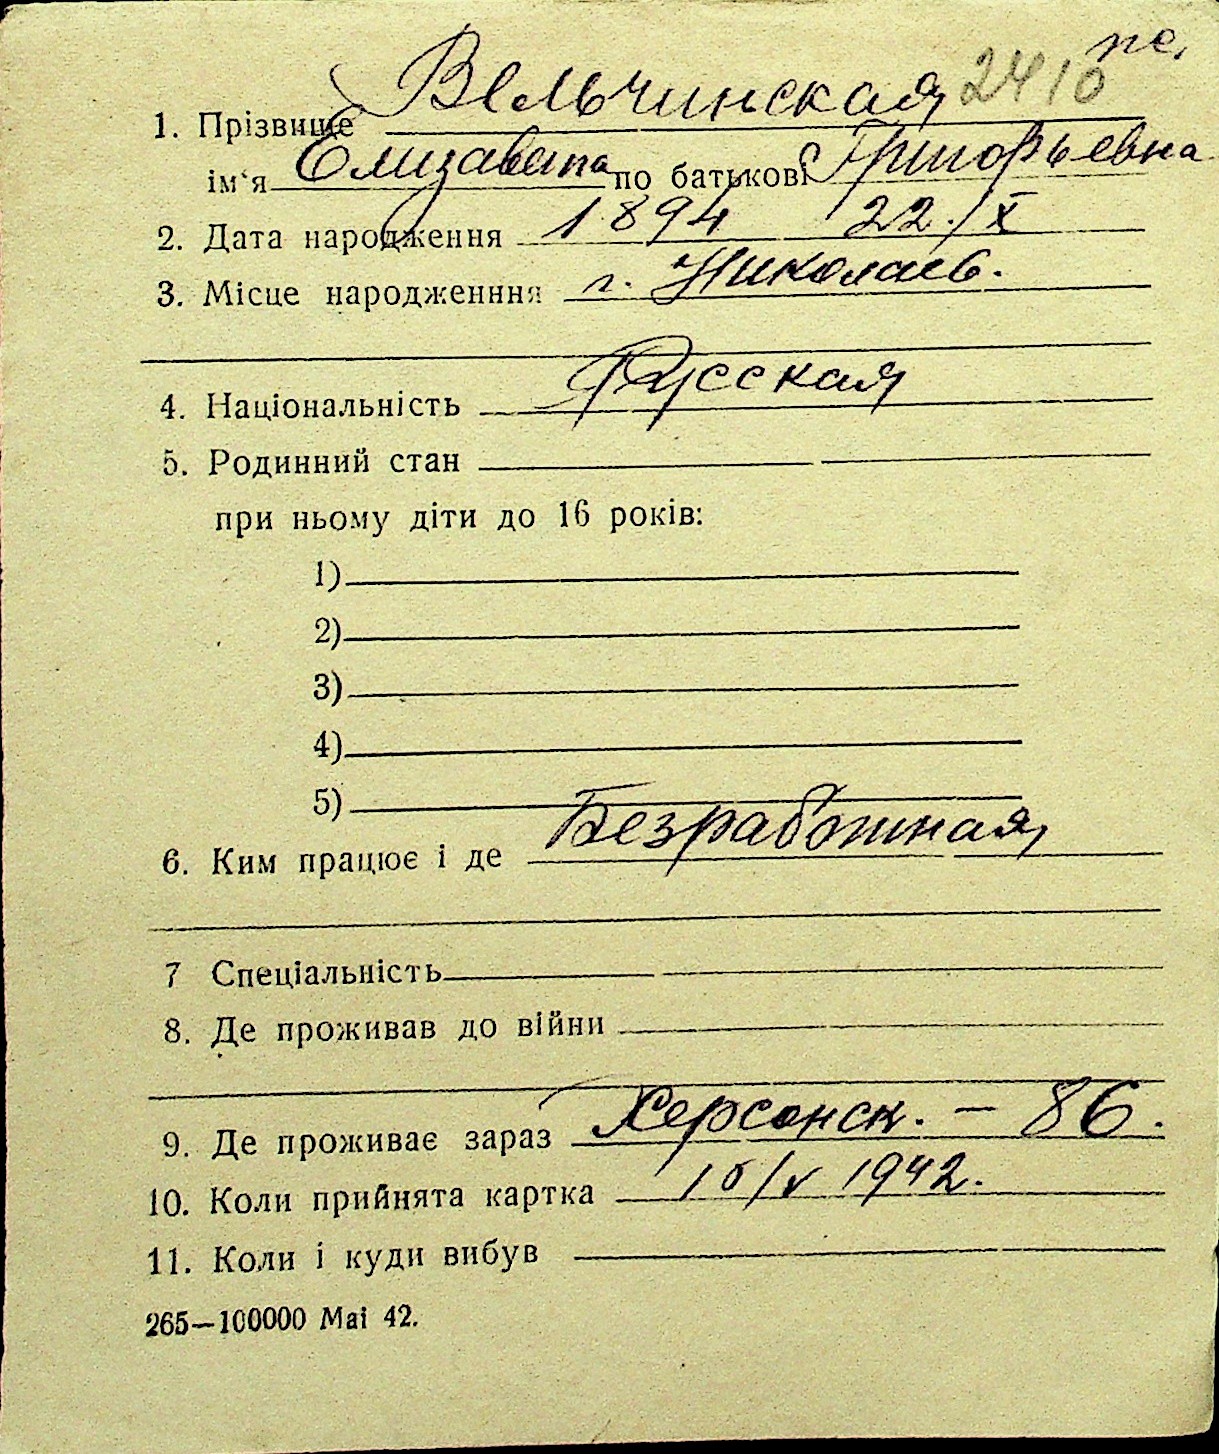 пе.
2410
1. Прізвище Вельчинская
ім'я Елизавета по батькові Григорьевна
2. Дата народження 1894 22/X
3. Місце народженння г. Николаев.
4. Національність Русская
5. Родинний стан
при ньому діти до 16 років:
1)
2)
3)
4)
5)
6. Ким працює і де Безработная
7 Спеціальність
8. Де проживав до війни
9. Де проживає зараз Херсонск. – 86.
10. Коли прийнята картка 10/V 1942.
11. Коли і куди вибув
265—100000 Mai 42.